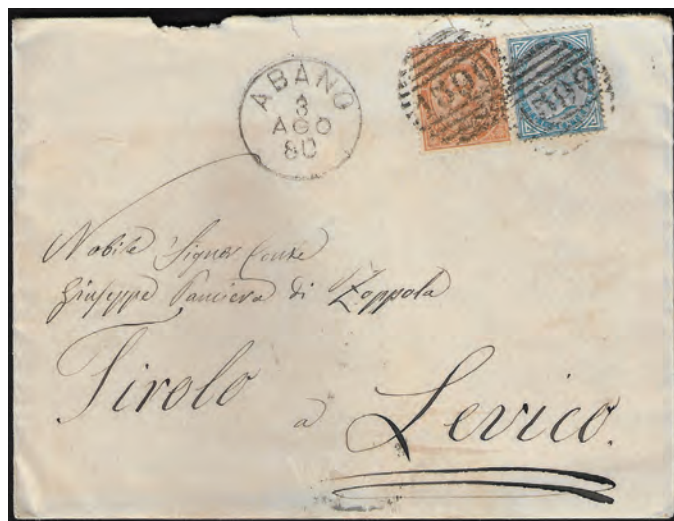 ABANO
3
AGO
80
Nobile Signor Conte
Giuseppe Panciera di Zoppola
Tirolo
a Levico.